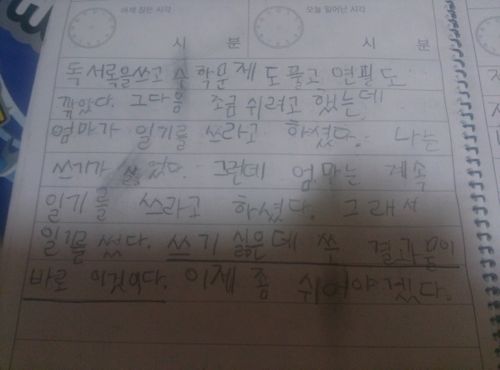 어제 잠든 시각 오늘 일어난 시각
시 분 시 분
독서록을쓰고 수학문제도 풀고 연필도
깎았다. 그다음 조금 쉬려고 했는데
엄마가 일기를 쓰라고 하셨다. 나는
쓰기가 싫었다. 그런데 엄마는 계속
일기를 쓰라고 하셨다. 그래서
일기를 썼다. 쓰기 싫은데 쓴 결과물이
바로 이것이다. 이제 좀 쉬어야겠다.